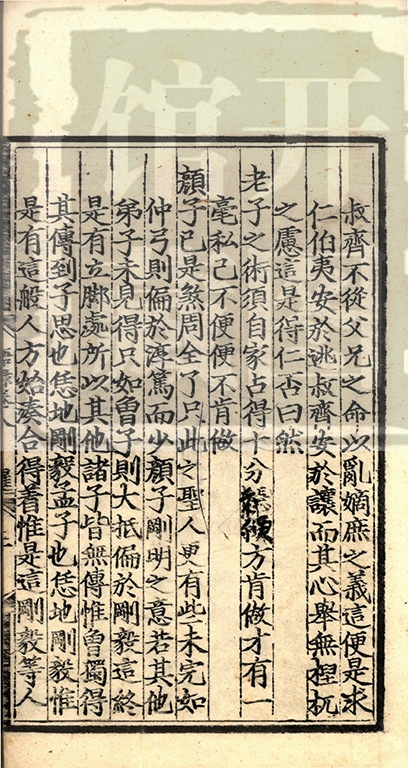 叔齊不從父兄之命以亂嫡庶之義這便是求
仁伯夷安於逃叔齊安於讓而其心舉無㮣杌
之慮這是得仁否曰然
老子之術須自家占得十分穩便方肯做才有一
毫私己不便便不肯做
顔子已是煞周全了只此之聖人更有些未完如
仲弓則偏於淳篤而少顔子剛明之意若其他
弟子未見得只如曾子則大抵偏於剛毅這終
是有立脚處所以其他諸子皆無傳惟曾獨得
其傳到子思也恁地剛毅孟子也恁地剛毅惟
是有這般人方始湊合得着惟是這剛毅等人